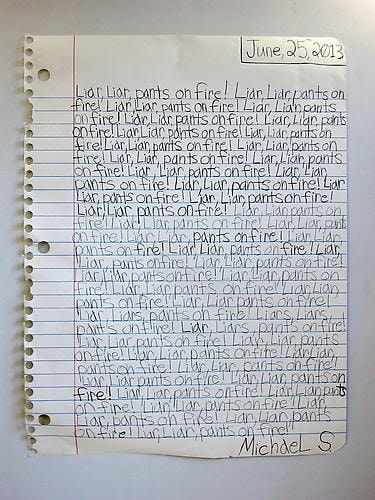 June, 25, 2013
Liar, Liar, pants on fire! Liar, Liar, pants on
fire! Liar, Liar, pants on fire! Liar, Liar, pants
on fire! Liar, Liar, pants on fire! Liar, Liar, pants
on fire! Liar, Liar, pants on fire! Liar, Liar, pants on
fire! Liar, Liar, pants on fire! Liar, Liar, pants on
fire! Liar, Liar, pants on fire! Liar, Liar, pants
on fire! Liar, Liar, pants on fire! Liar, Liar,
pants on fire! Liar, Liar, pants on fire! Liar
Liar, pants on fire! Liar, Liar, pants on fire!
Liar, Liar, pants on fire! Liar, Liar, pants on
fire! Liar, Liar, pants on fire! Liar, Liar, pants
on fire! Liar, Liar, pants on fire! Liar, Liar,
pants on fire! Liar, Liar, pants on fire! Liar,
Liar, pants on fire! Liar, Liar, pants on fire!
Liar, Liar, pants on fire! Liar, Liar, pants on
fire! Liar, Liar, pants on fire! Liar, Liar,
pants on fire! Liar, Liar, pants on fire!
Liar, Liars, pants on fire! Liars, Liars,
pants on fire! Liar, Liars, pants on fire!
Liar, Liar, pants on fire! Liar, Liar, pants
on fire! Liar, Liar, pants on fire! Liar, Liar,
pants on fire! Liar, Liar, pants on fire!
Liar, Liar, pants on fire! Liar, Liar, pants on
fire! Liar, Liar, pants on fire! Liar, Liar, pants
on fire! Liar, Liar, pants on fire! Liar,
Liar, pants on fire! Liar, Liar, pants
on fire! Liar, Liar, pants on fire!
Michael S.